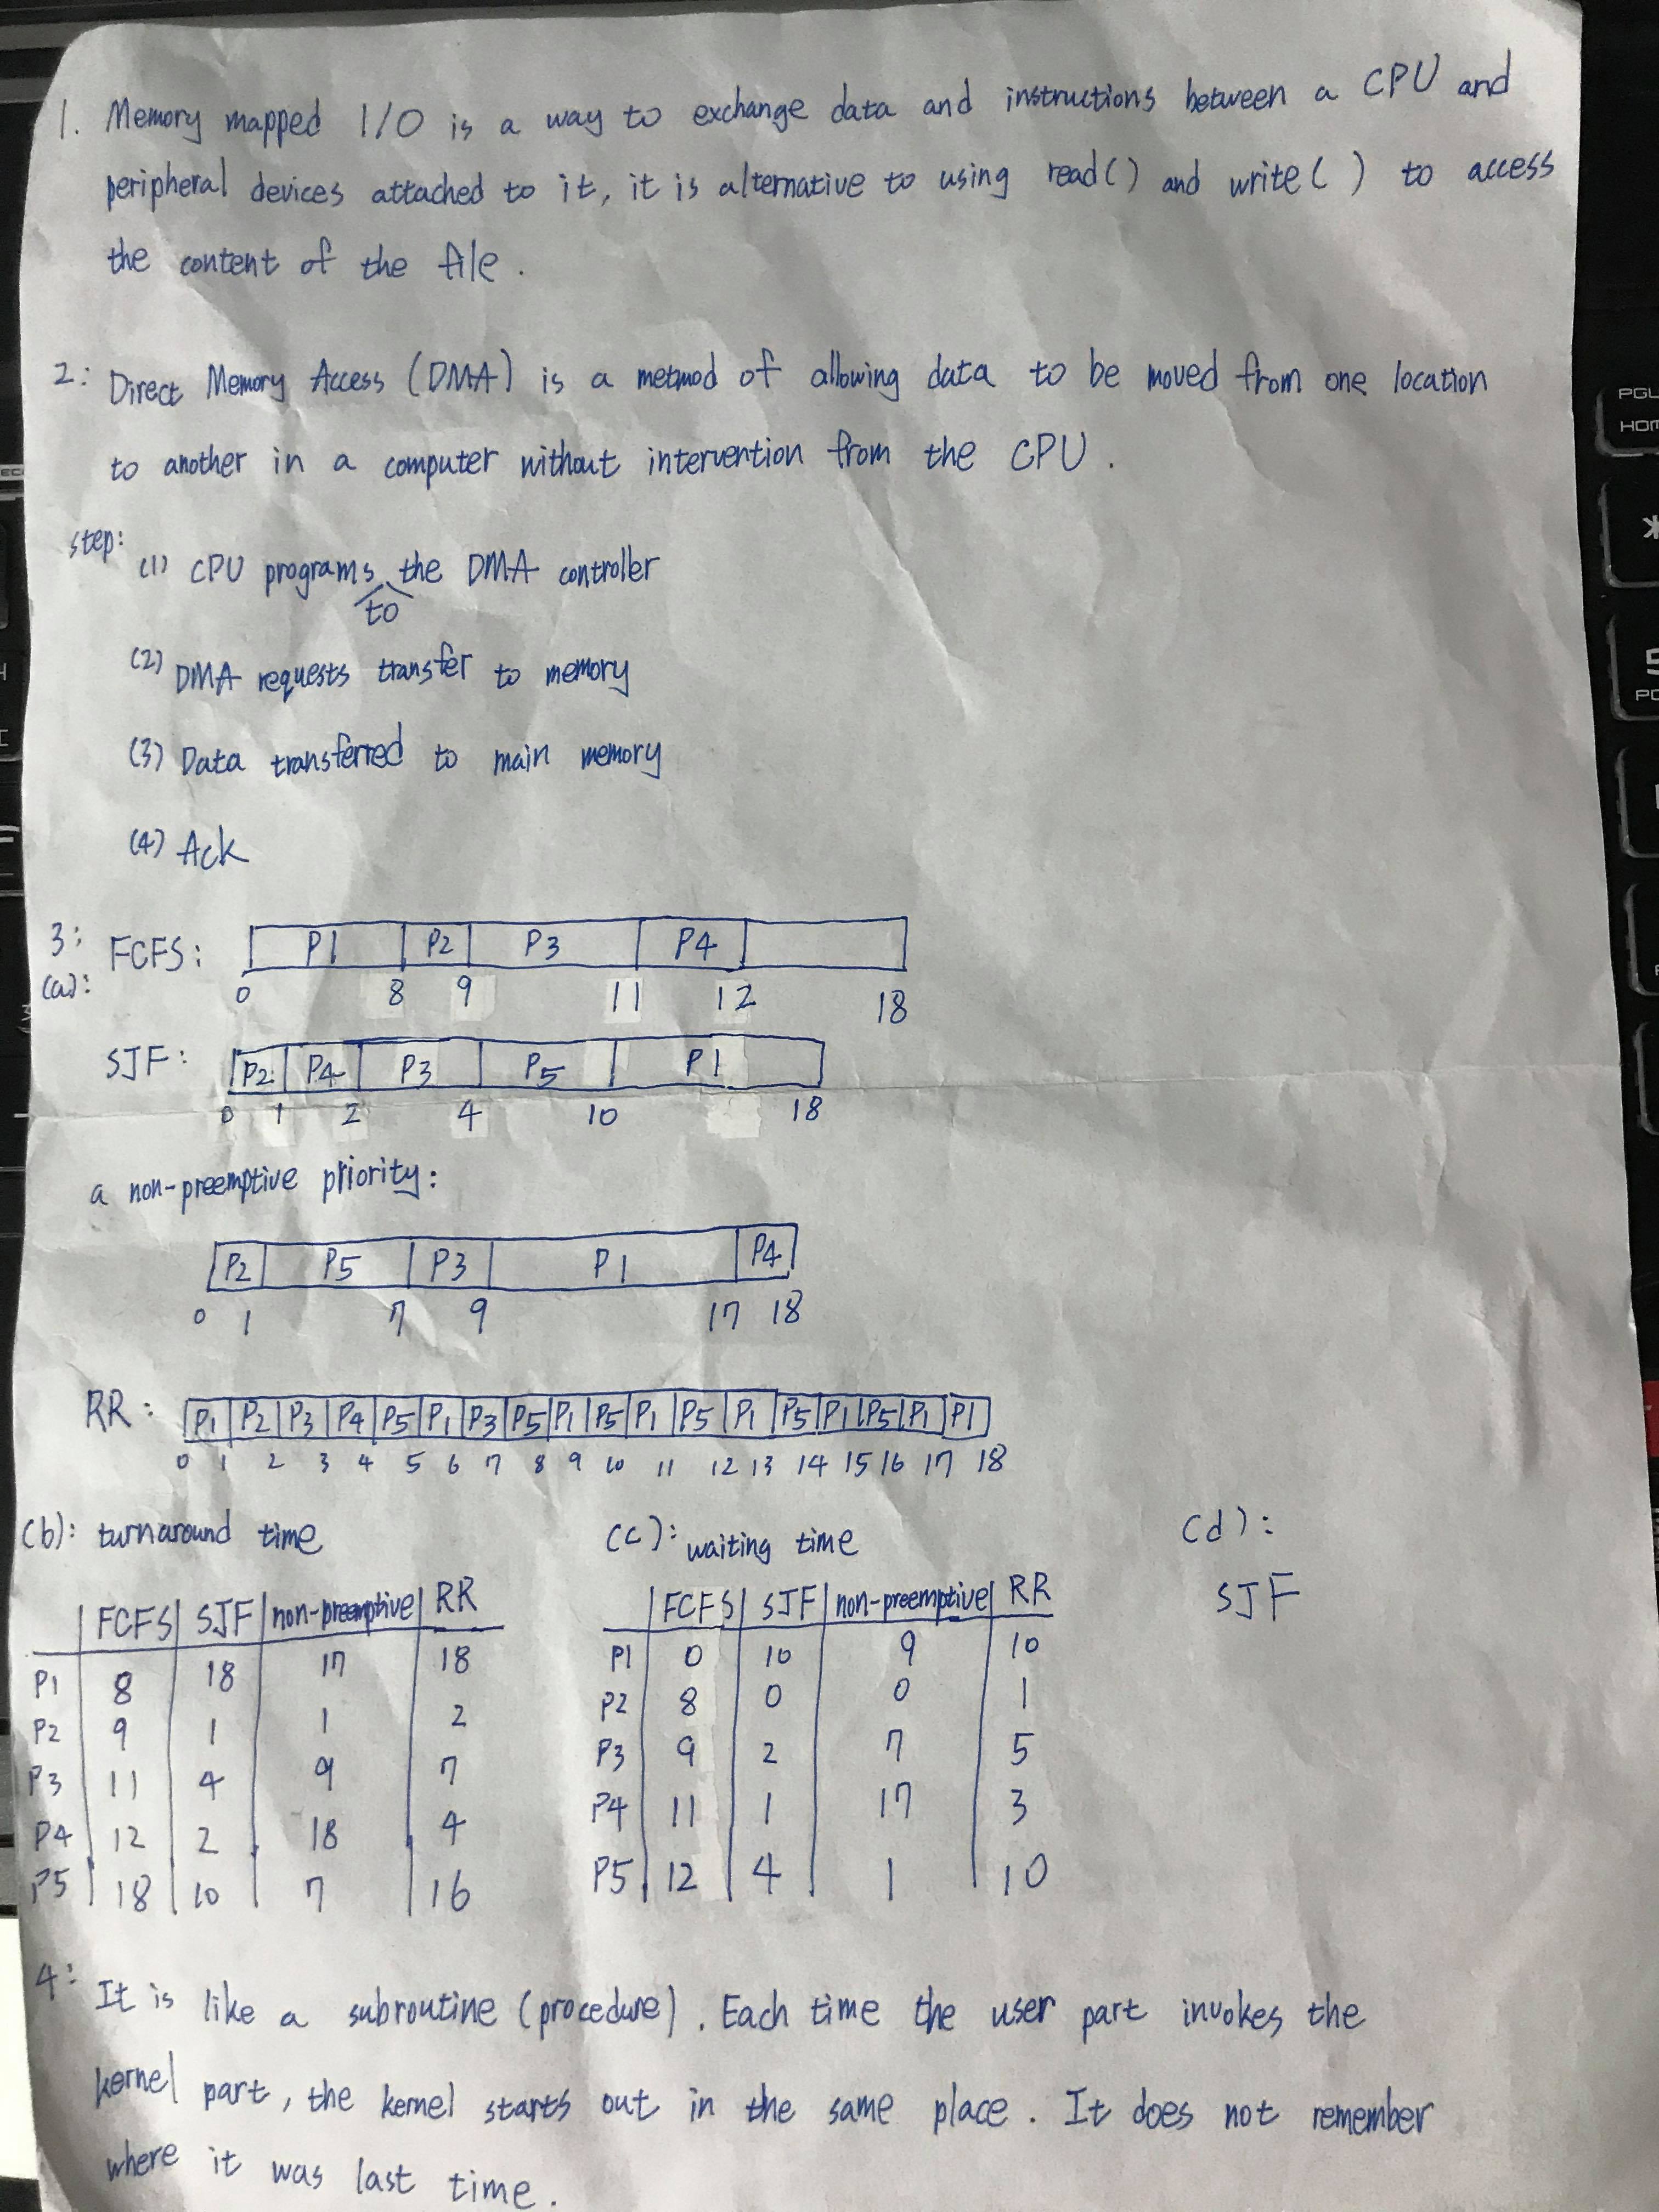 1. Memory mapped I/O is a way to exchange data and instructions between a CPU and
peripheral devices attached to it, it is alternative to using read() and write( ) to access
the content of the file.
2: Direct Memory Access (DMA) is a method of allowing data to be moved from one location
to another in a computer without intervention from the CPU.
step:
(1) CPU programs to the DMA controller
(2) DMA requests transfer to memory
(3) Data transferred to main memory
(4) Ack
3: FCFS: P1 P2 P3 P4
(a): 0 8 9 11 12 18
SJF: P2 P4 P3 P5 P1
0 1 2 4 10 18
a non-preemptive priority:
P2 P5 P3 P1 P4
0 1 7 9 17 18
RR: P1 P2 P3 P4 P5 P1 P3 P5 P1 P5 P1 P5 P1 P5 P1 P5 P1 P1
0 1 2 3 4 5 6 7 8 9 10 11 12 13 14 15 16 17 18
(b): turnaround time
FCFS SJF non-preemptive RR
P1 8 18 17 18
P2 9 1 1 2
P3 11 4 9 7
P4 12 2 18 4
P5 18 10 7 16
(c): waiting time
FCFS SJF non-preemptive RR
P1 0 10 9 10
P2 8 0 0 1
P3 9 2 7 5
P4 11 1 17 3
P5 12 4 1 10
(d):
SJF
4: It is like a subroutine (procedure). Each time the user part invokes the
kernel part, the kernel starts out in the same place. It does not remember
where it was last time.